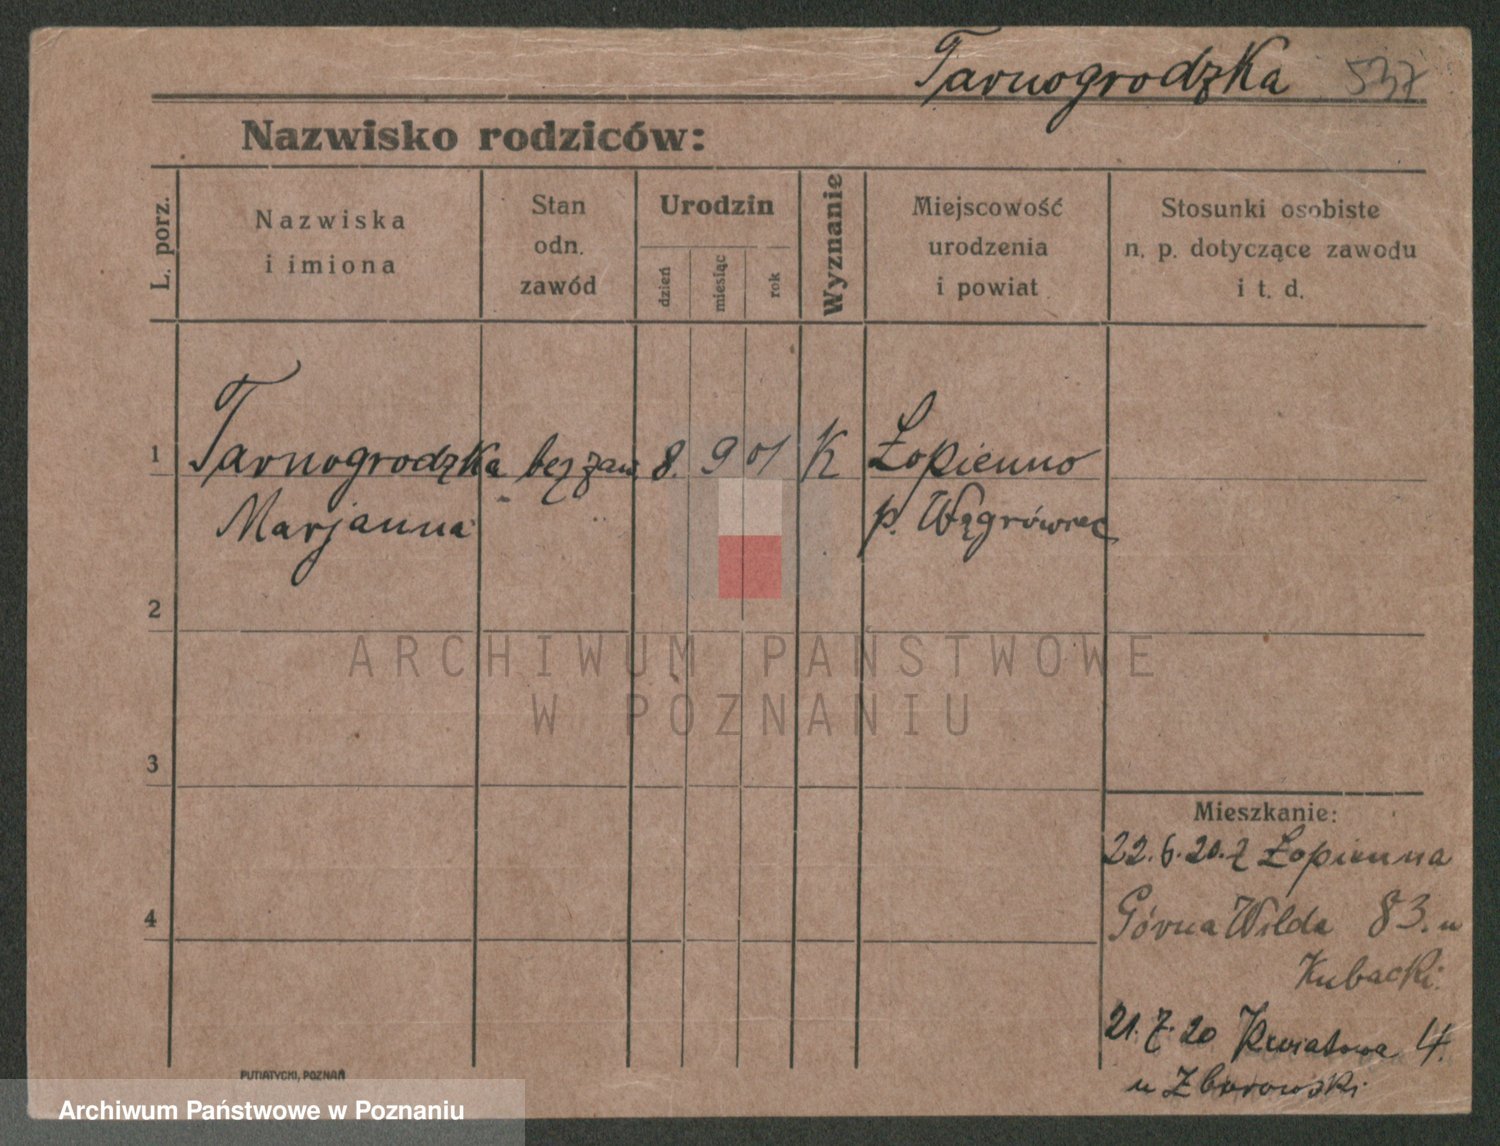 Tarnogrodzka 537
Nazwisko rodziców:
L. porz.
Nazwiska
i imiona
Stan
odn.
zawód
Urodzin
dzień
miesiąc
rok
Wyznanie
Miejscowość
urodzenia
i powiat
Stosunki osobiste
n. p. dotyczące zawodu
i t. d.
1 Tarnogrodzka bez zaw. 8. 9 01 K Łopienno
Marjanna p. Wągrówiec
2
ARCHIWUM PAŃSTWOWE
W POZNANIU
3
Mieszkanie:
22.6.20. z Łopienna
4
Górna Wilda 83. u
Kubacki.
21.7.20 Kwiatowa 4.
u Zborowski
PUTIATYCKI, POZNAŃ
Archiwum Państwowe w Poznaniu